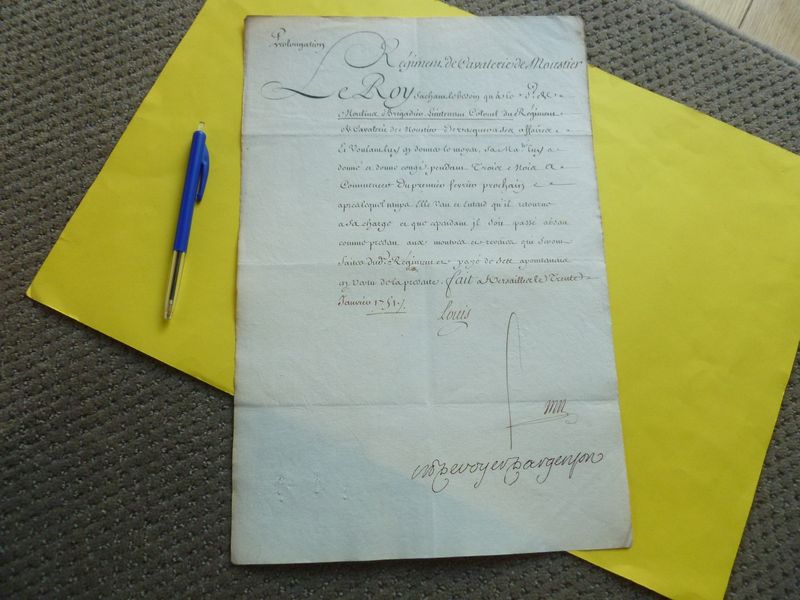 Prolongation
Régiment de Cavalerie de Moustier
Le Roy Sachant le besoin qu'a le S.r de
Moulina Brigadier Lieutenant Colonel du Régiment
de Cavalerie de Moustier de vacquer a ses affaires
Et voulant luy en donner le moyen, Sa Ma.té luy a
donné et donne congé pendant Trois Mois A
Commencer du premier fevrier prochain
apres lequel tamps Elle veut et Entend qu'il retourne
a sa charge et que cependant il soit passé absent
comme present aux montres et reveües qui seront
faites dud. Régiment et payé de ses apointemens
en vertu de la presente. fait a Versailles le Trente
Janvier 1751./.
Louis
M De voyer D'argenson